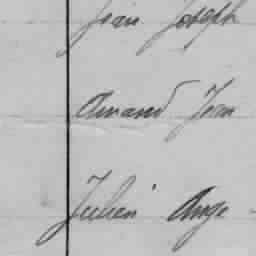 Jean Joseph
Amand Jean
Julien Ange